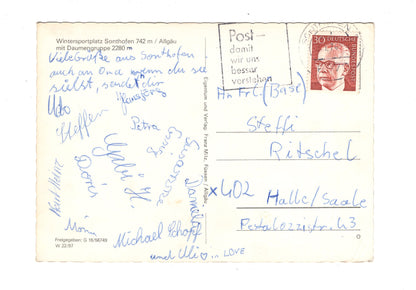 Wintersportplatz Sonthofen 742 m / Allgäu
mit Daumengruppe 2280 m
Viele Grüße aus Sonthofen
auch an Ona wenn du sie
siehst, sendet dir
Udo
Hansjörg
Steffen
Petra
Conny
Gabi H.
Susanne
Daniela
Karl Heinz
Doris
Michael Schopf
und Uli in LOVE
Freigegeben: G 18/98749
W 22/97
Eigentum und Verlag: Franz Milz, Füssen / Allgäu
Post-
damit
wir uns
besser
verstehen
30
DEUTSCHE BUNDESPOST
An Frl. (Base)
Steffi
Ritschel
x402 Halle/Saale
Pestalozzistr. 43